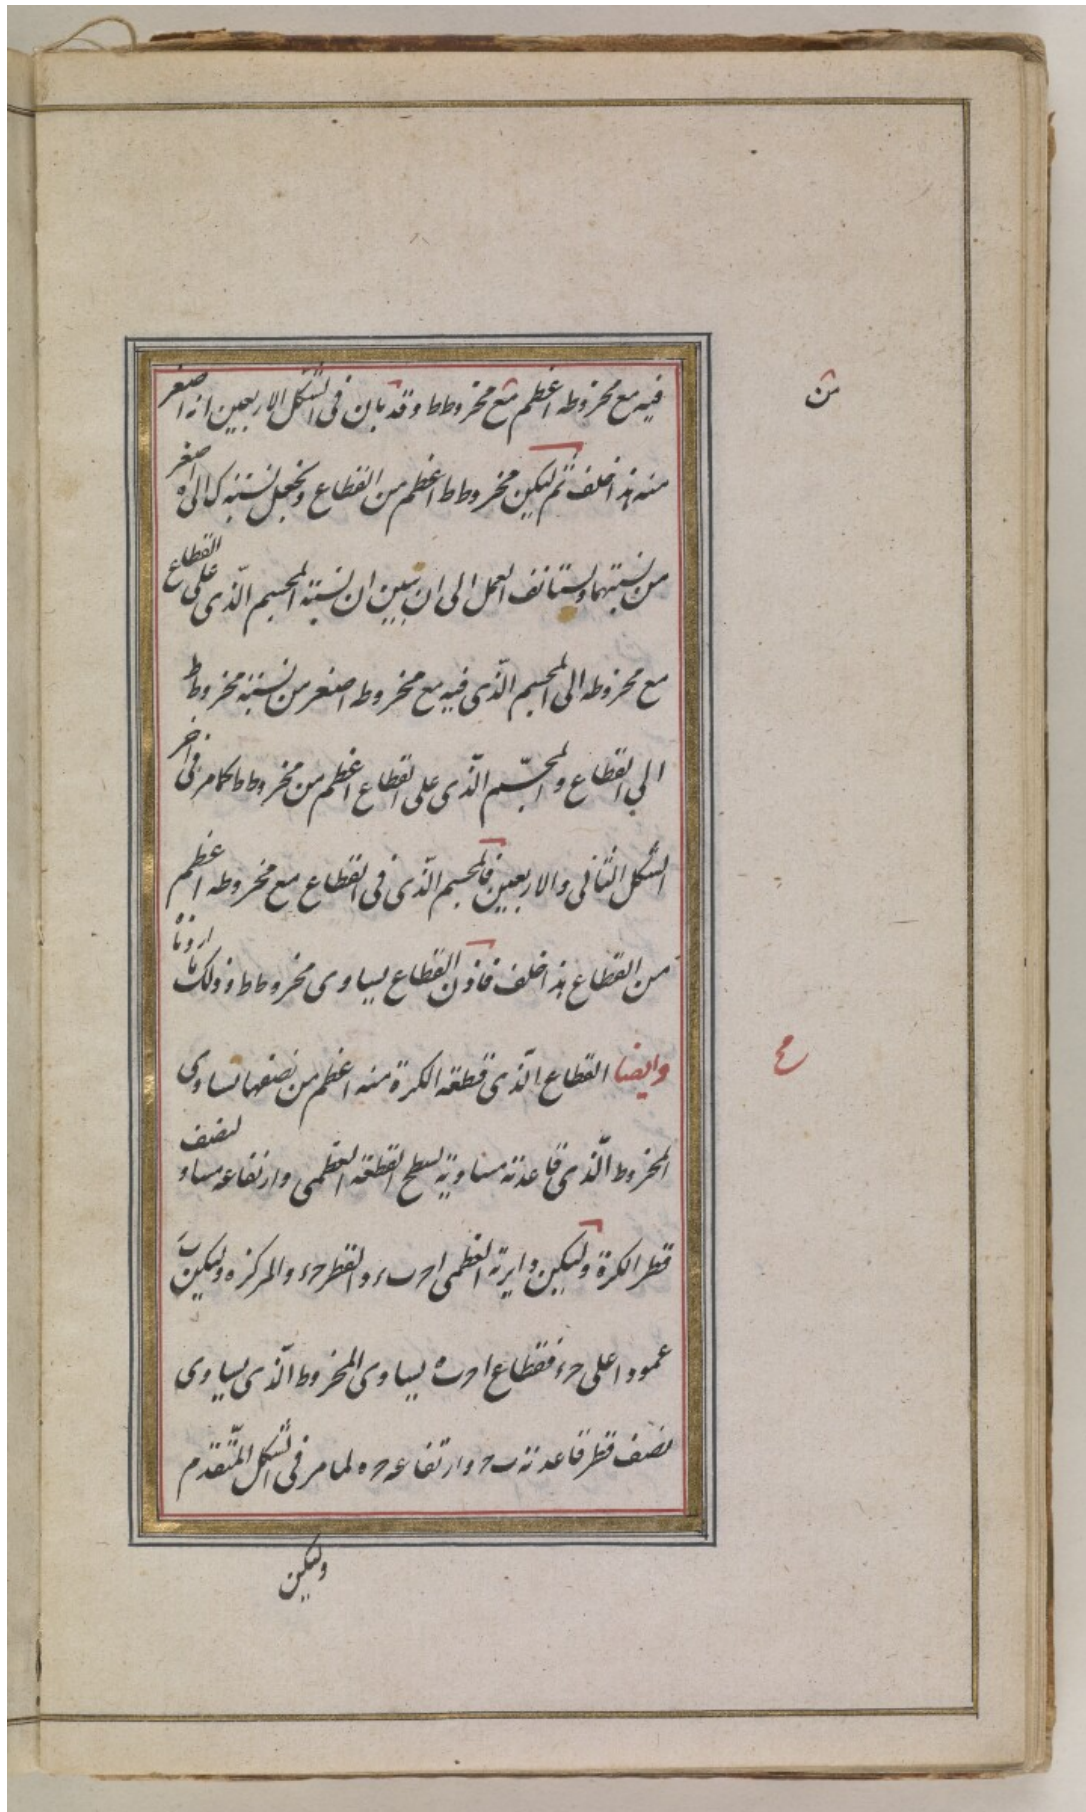 فيه مع مخروطه اعظم من مخروط ط وقد بان فى الشكل الاربعين انه اصغر
منه هذا خلف ثم ليكن مخروط ط اعظم من القطاع ونجعل نسبة ك الى ه اصغر
من نسبتهما ونستانف العمل الى ان نبين ان نسبة المجسم الّذى على القطاع
مع مخروطه الى المجسم الّذى فيه مع مخروطه اصغر من نسبة مخروط ط
الى القطاع والمجسّم الّذى على القطاع اعظم من مخروط ط لما مر فى اخر
الشكل الثانى والاربعين فالمجسم الّذى فى القطاع مع مخروطه اعظم
من القطاع هذا خلف فاذن القطاع يساوى مخروط ط وذلك ما اردناه
وايضا القطاع الّذى قطعة الكرة منه اعظم من نصفها تساوى
المخروط الّذى قاعدته مساوية لسطح القطعة العظمى وارتفاعه مساو لنصف
قطر الكرة وليكن دايرة العظمى ا ح ب ء والقطر ح ء والمركز ه وليكن ب
عمودا على ح ء فقطاع ا ح ب ه يساوى المخروط الّذى يساوى
نصف قطر قاعدته ب ح وارتفاعه ح ه لما مر فى الشكل المتقدم
وليكن
مح